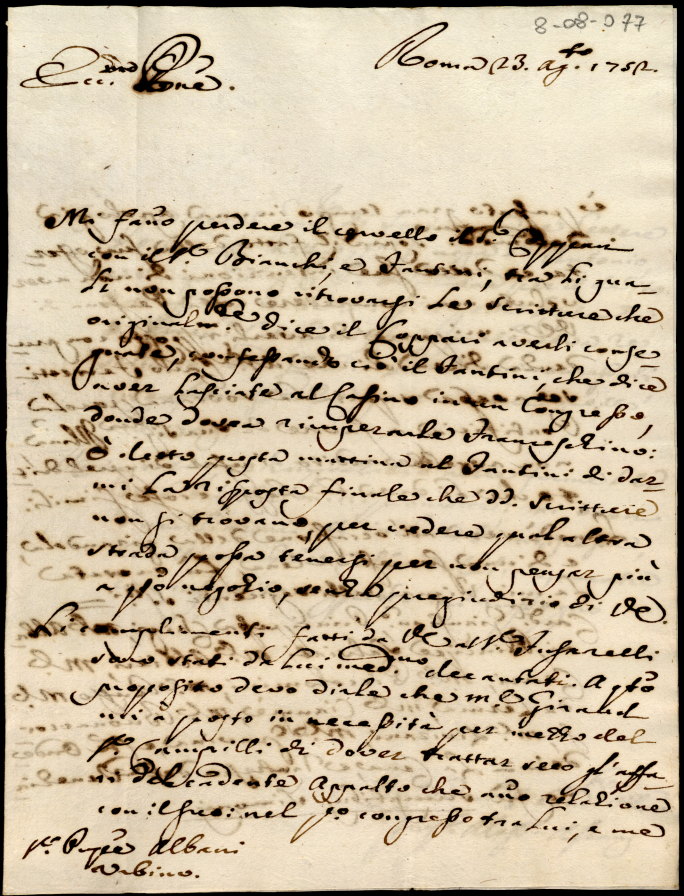 8-08-077
Roma 23. Ag.to 1752.
Ecc.mo Pne.
Mi fano perdere il cervello il S.r Coppari
con il S.r Bianchi, e Fantini, tra li qua-
li non possono ritrovarsi le scritture che
originalm.te dice il Coppari averli conse-
gnate, confessando ciò il Fantini, che dice
aver lasciate al Casino in un Congresso,
donde dovea rimperarle Franceschino:
ò detto questa mattina al Fantini di dar-
mi la risposta finale che dd. scritture
non si trovano, per vedere qual altra
strada possa tenersi per non pensar più
a q.to negozio, senza pregiudizio di VE.
Li complimenti fatti da VE al S.r
sono stati da lui med.mo decantati. A q.to
proposito devo dirle che m.r Giraud
mi à posto in necessità per mezzo del
S.r Campilli di dover trattar seco gl'affa-
ri del cadente Appalto che ano relazione
con il suo nel p.o congresso tra lui, e me
S.r Pnpe Albani
Urbino.